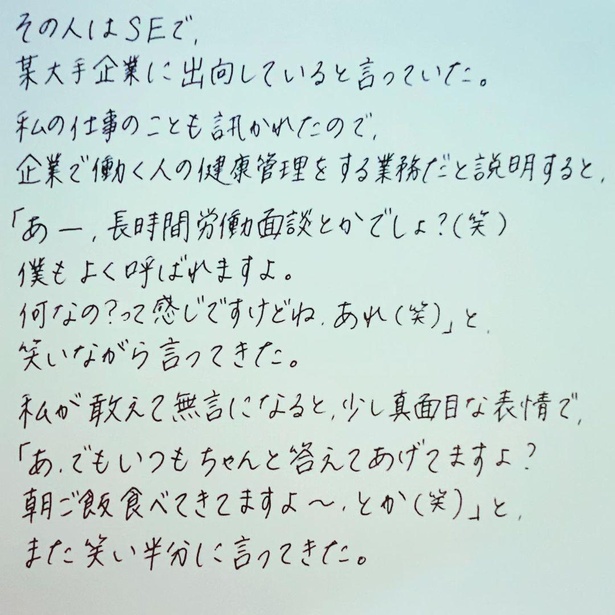 その人はSEで,
某大手企業に出向していると言っていた。
私の仕事のことも訊かれたので,
企業で働く人の健康管理をする業務だと説明すると,
「あー,長時間労働面談とかでしょ?(笑)
僕もよく呼ばれますよ。
何なの?って感じですけどね,あれ(笑)」と,
笑いながら言ってきた。
私が敢えて無言になると,少し真面目な表情で,
「あ,でもいつもちゃんと答えてあげてますよ?
朝ご飯食べてきてますよ〜,とか(笑)」と,
また笑い半分に言ってきた。